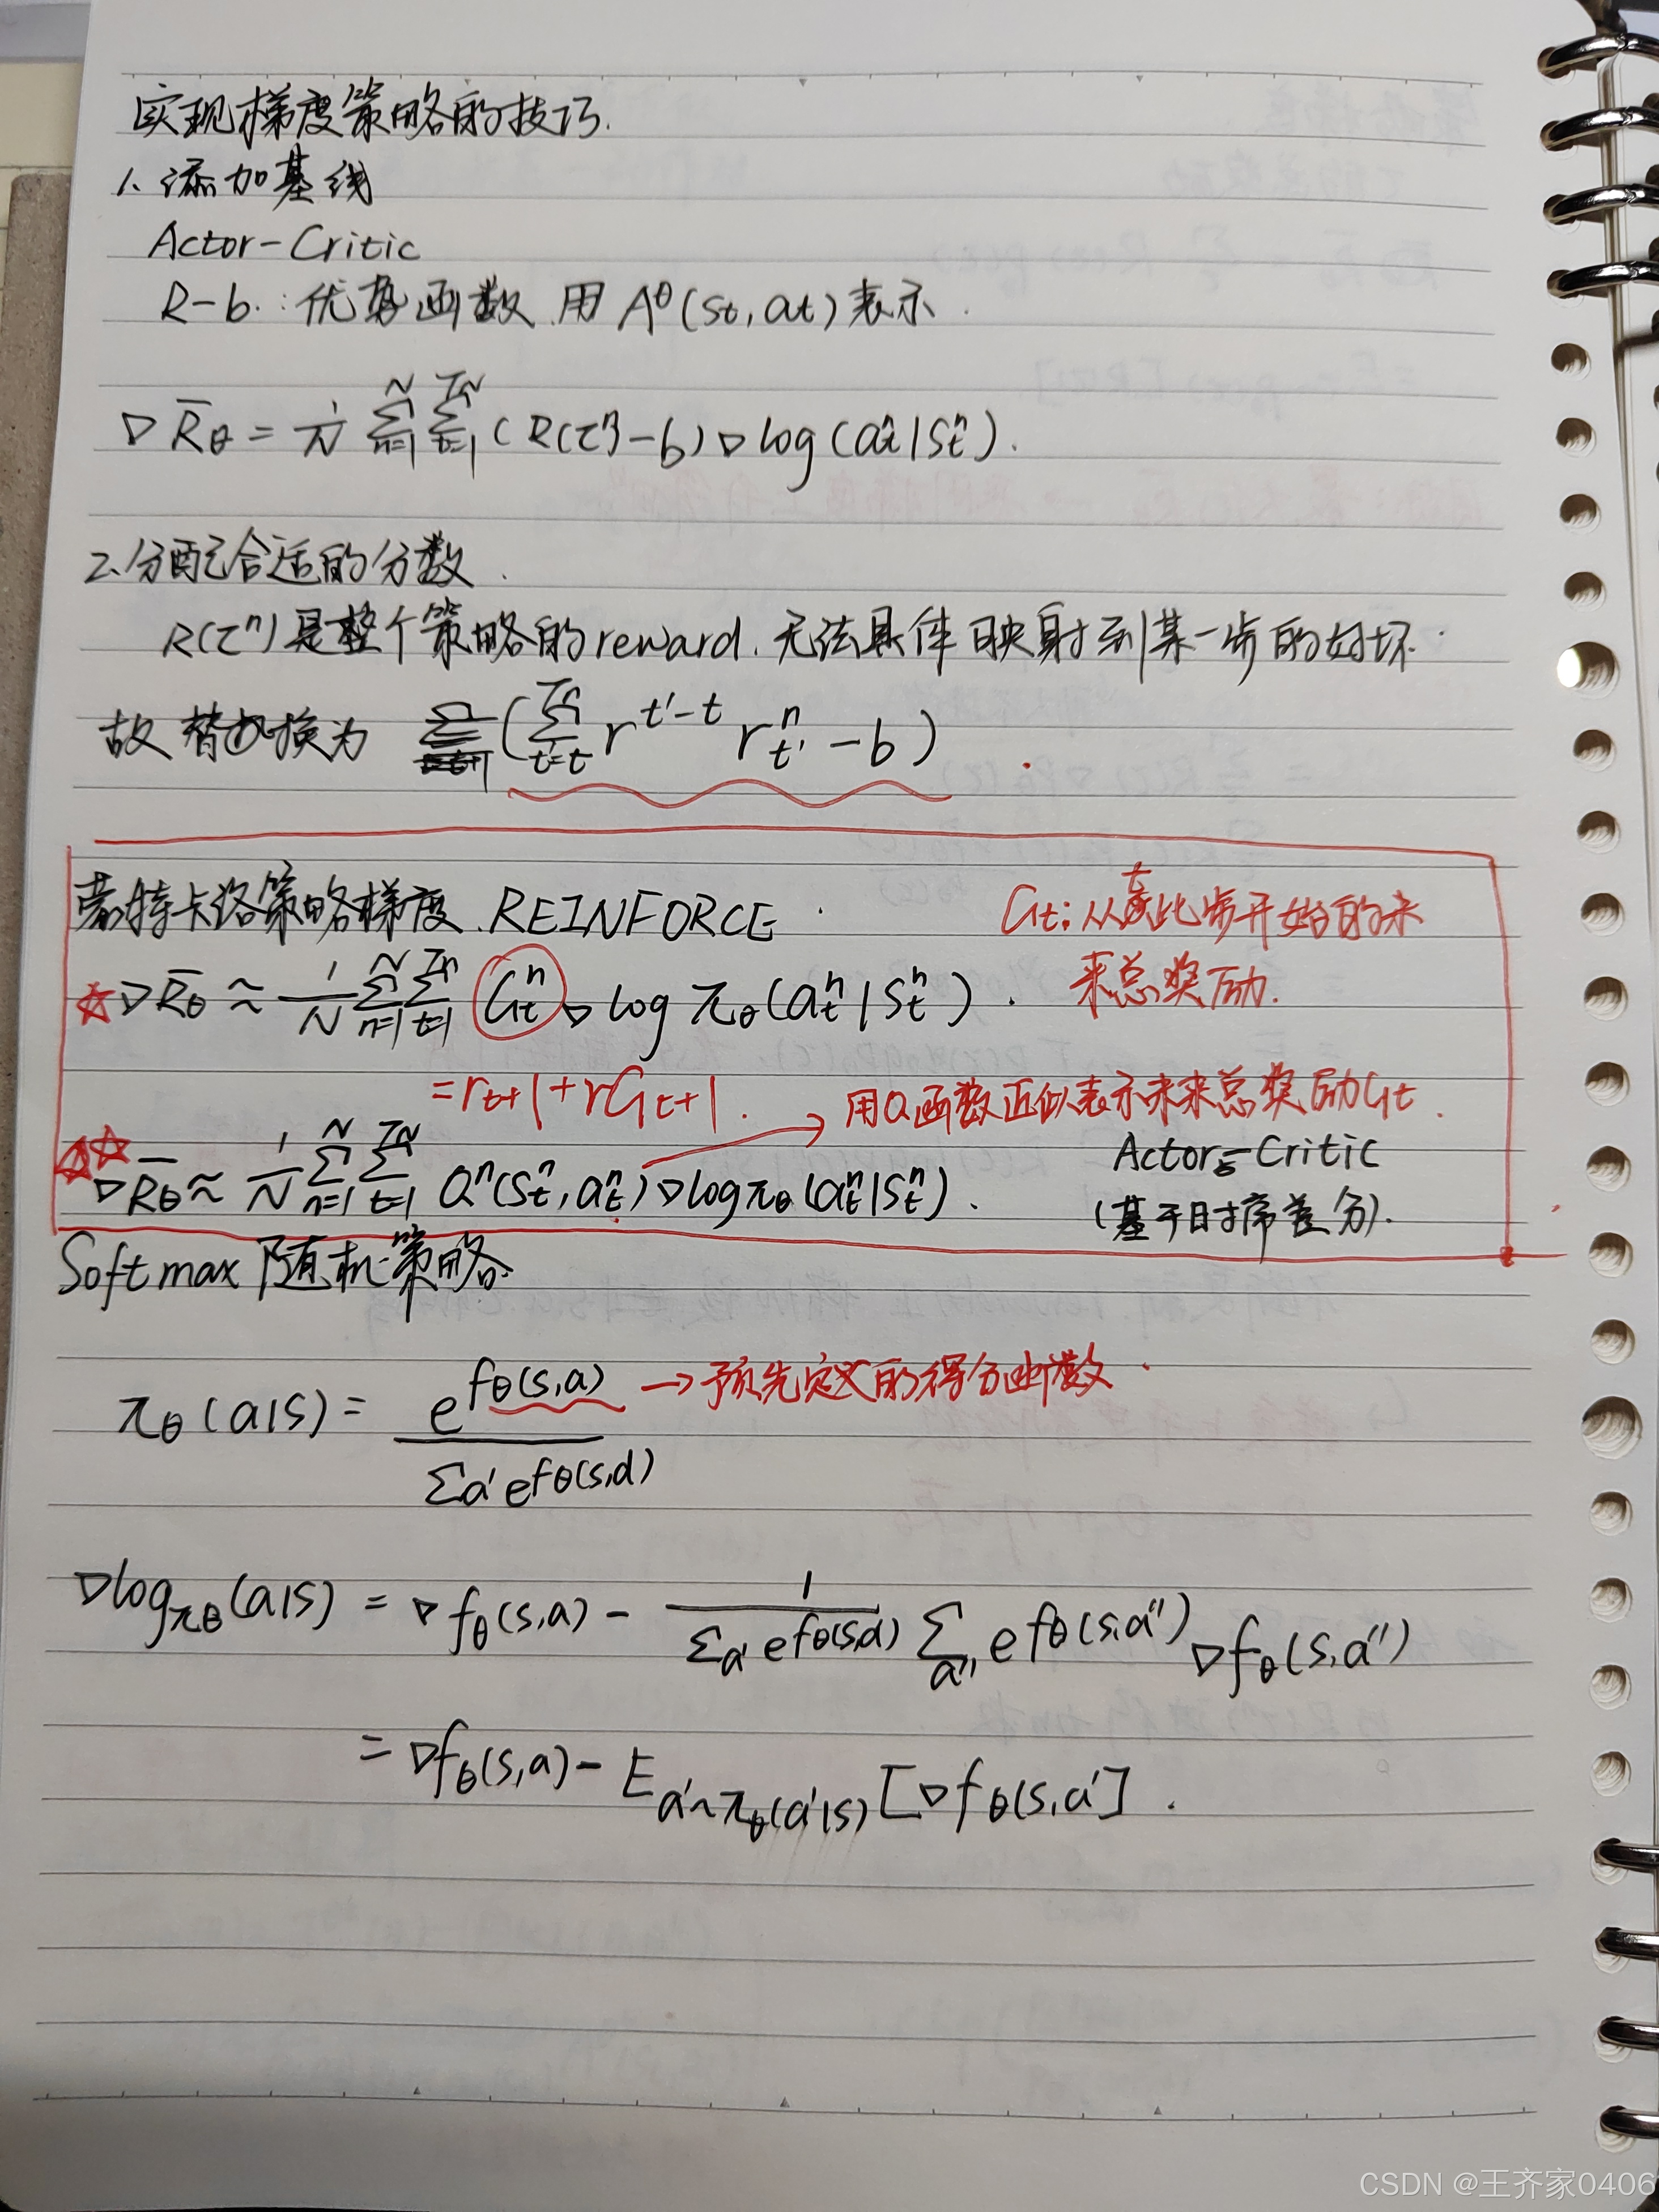 实现梯度策略的技巧.
1、添加基线
Actor-Critic
R-b.:优势函数.用 A^θ(st,at)表示.
▽R̄θ = 1/N Σ_{n=1}^{N} Σ_{t=1}^{TN} (R(τ^n)-b)▽log(a_t^n|s_t^n).
2、分配合适的分数.
R(τ^n)是整个策略的reward.无法具体映射到某一步的好坏.
故 替换为 (Σ_{t'=t}^{Tn} r^{t'-t} r_{t'}^n -b)
蒙特卡洛策略梯度.REINFORCE
Gt:从此步开始的未
来总奖励.
☆▽R̄θ ≈ 1/N Σ_{n=1}^{N} Σ_{t=1}^{Tn} G_t^n ▽log πθ(a_t^n|s_t^n).
=r_{t+1}+rG_{t+1}.
→用Q函数近似表示未来总奖励Gt.
☆☆▽R̄θ ≈ 1/N Σ_{n=1}^{N} Σ_{t=1}^{TN} Q^n(s_t^n,a_t^n)▽log πθ(a_t^n|s_t^n).
Actor-Critic
(基于时序差分).
Softmax 随机策略.
πθ(a|s)= e^{fθ(s,a)} / Σa' e^{fθ(s,a')}
→预先定义的得分函数.
▽log πθ(a|s) = ▽fθ(s,a) - 1/(Σa' e^{fθ(s,a')}) Σ_{a''} e^{fθ(s,a'')} ▽fθ(s,a'')
= ▽fθ(s,a) - E_{a'~πθ(a'|s)}[▽fθ(s,a'].
CSDN @王齐家0406